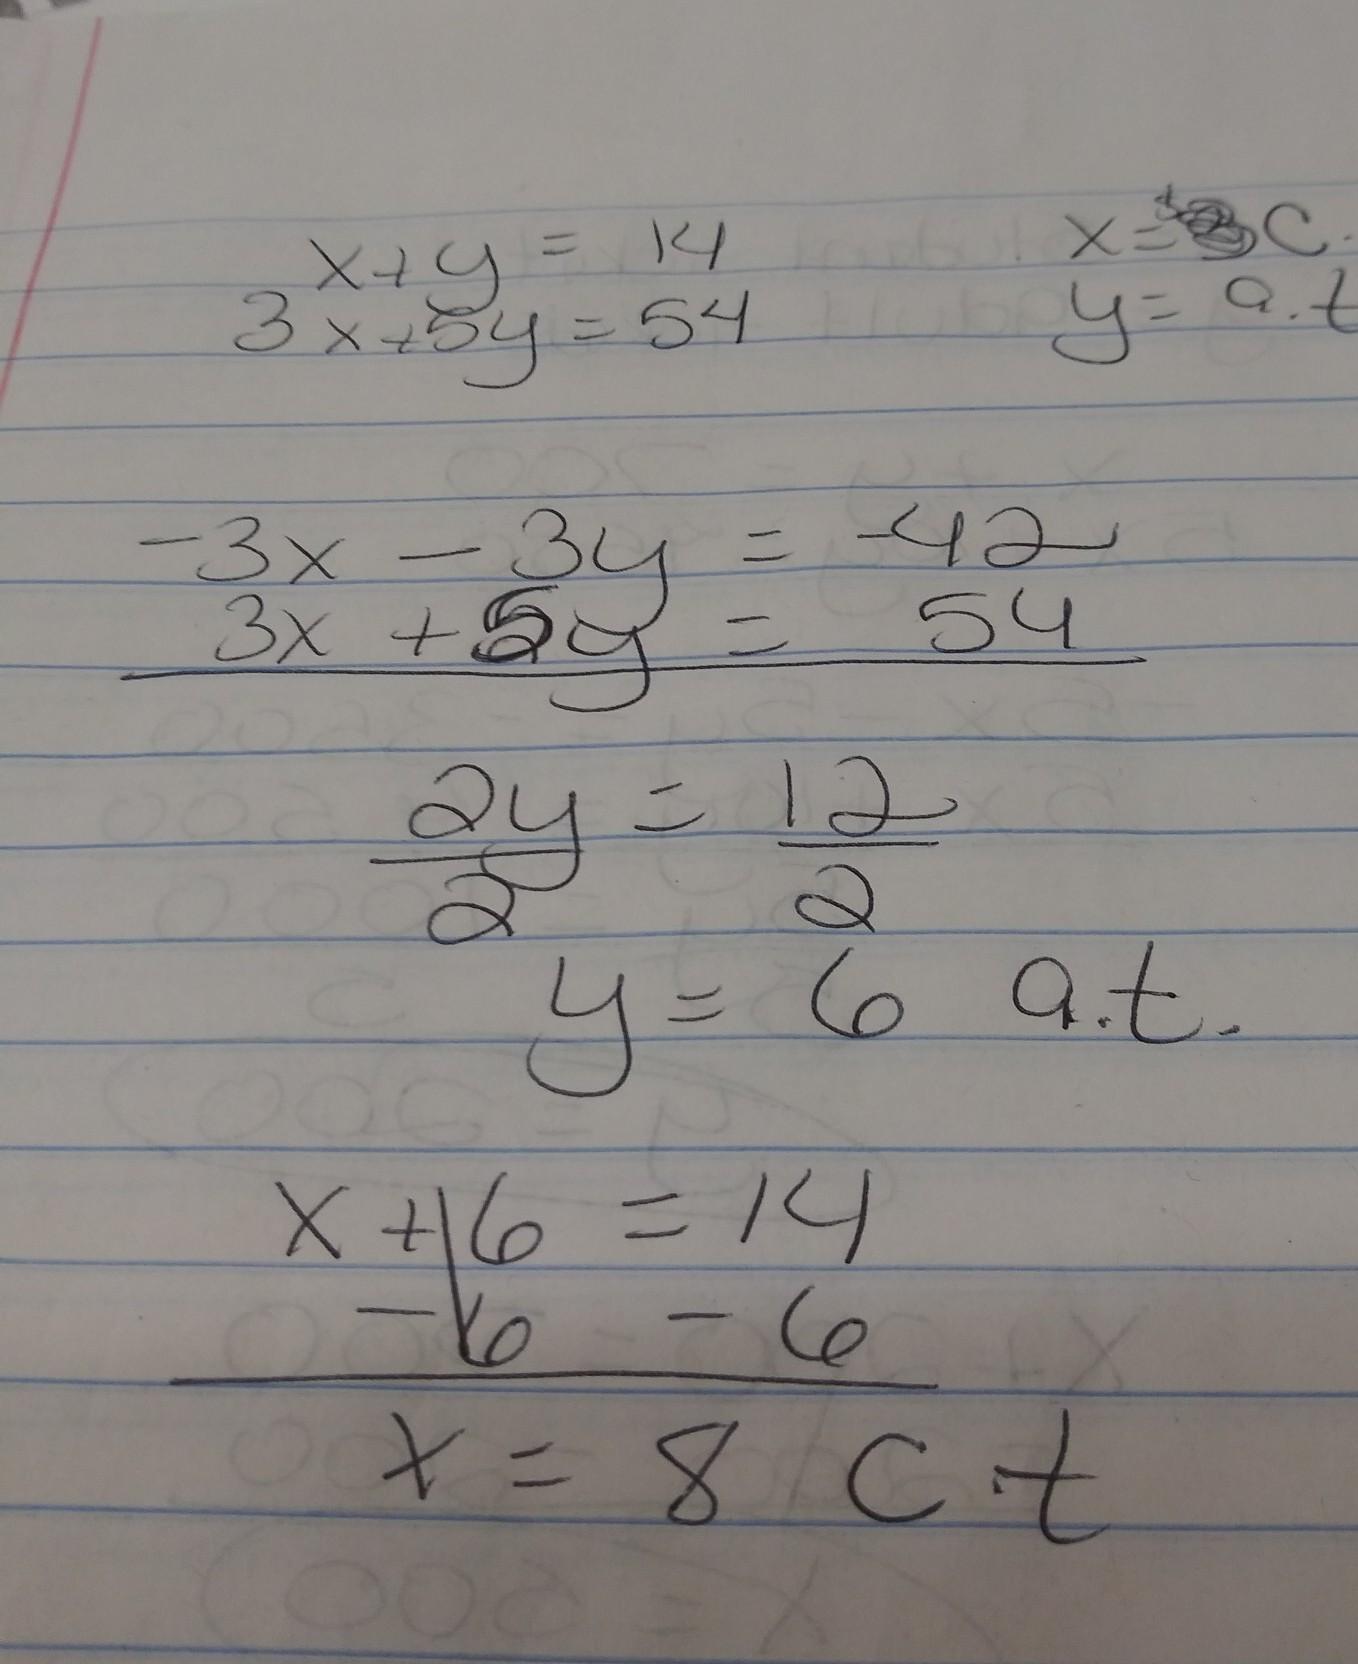 x+y = 14
x= c.
3x+5y=54
y= a.t
-3x - 3y = -42
3x + 5y = 54
2y = 12
2 2
y = 6 a.t.
x + 6 = 14
- 6 - 6
x = 8 c.t